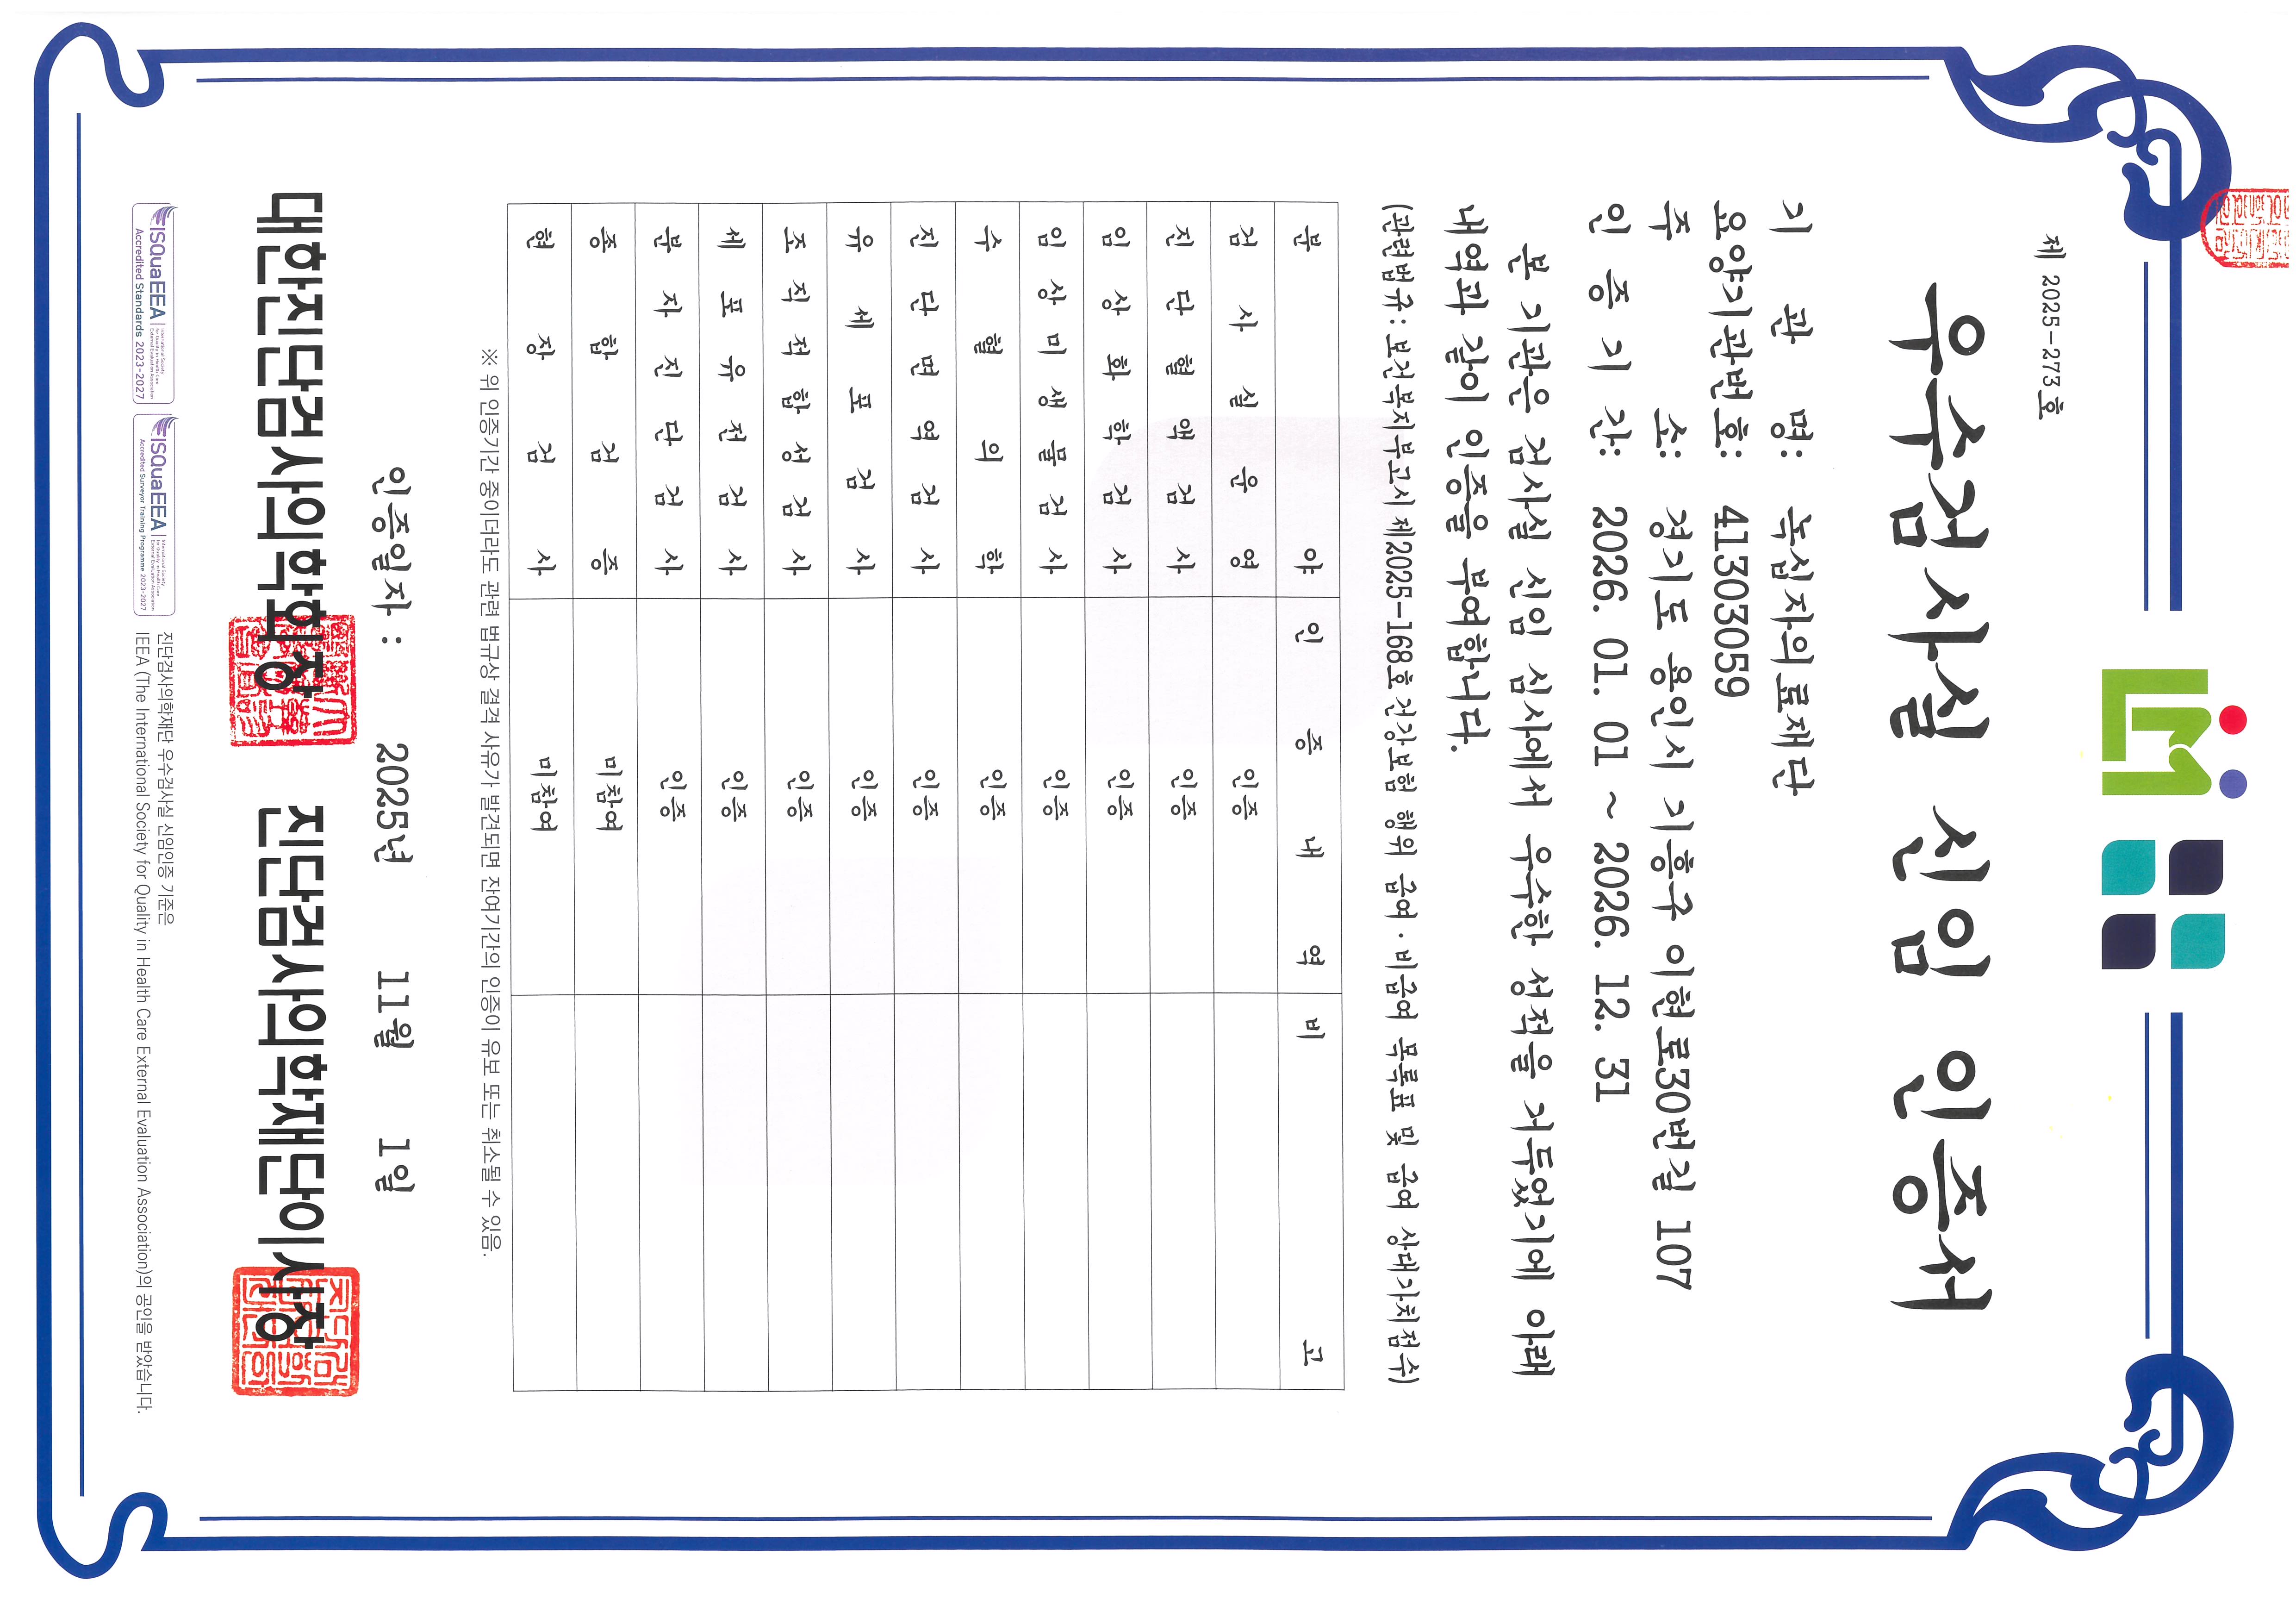 제 2025-273호
우수검사실 신임 인증서
기 관 명: 녹십자의료재단
요양기관번호: 41303059
주 소: 경기도 용인시 기흥구 이현로30번길 107
인 증 기 간: 2026. 01. 01 ~ 2026. 12. 31
본 기관은 검사실 신임 심사에서 우수한 성적을 거두었기에 아래
내역과 같이 인증을 부여합니다.
(관련법규: 보건복지부고시 제2025-168호 건강보험 행위 급여·비급여 목록표 및 급여 상대가치점수)
분 야 인 증 내 역 비 고
검 사 실 운 영 인증
진 단 혈 액 검 사 인증
임 상 화 학 검 사 인증
임 상 미 생 물 검 사 인증
수 혈 의 학 인증
진 단 면 역 검 사 인증
유 세 포 검 사 인증
조 직 적 합 성 검 사 인증
세 포 유 전 검 사 인증
분 자 진 단 검 사 인증
종 합 검 증 미참여
현 장 검 사 미참여
※ 위 인증기간 중이더라도 관련 법규상 결격 사유가 발견되면 잔여기간의 인증이 유보 또는 취소될 수 있음.
인증일자 : 2025년 11월 1일
대한진단검사의학회장 진단검사의학재단이사장
ISQuaEEA International Society for Quality in Health Care External Evaluation Association
Accredited Standards 2023-2027
ISQuaEEA International Society for Quality in Health Care External Evaluation Association
Accredited Surveyor Training Programme 2023-2027
진단검사의학재단 우수검사실 신임인증 기준은
IEEA (The International Society for Quality in Health Care External Evaluation Association)의 공인을 받았습니다.